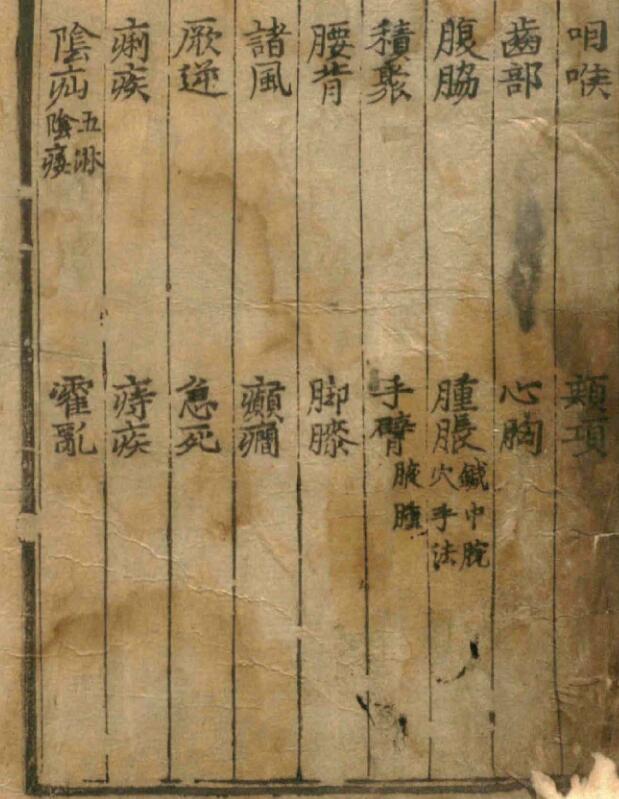 咽喉 頰項
齒部 心胸
腹脇 腫脹 鍼中脘穴手法
積聚 手臂 腋腫
腰背 脚膝
諸風 癲癎
厥逆 急死
痢疾 痔疾
陰疝 五淋陰痿 霍亂